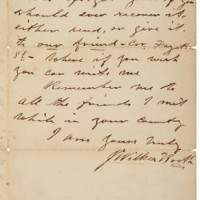 should ever recover it,
either send, or give it
to our friend
St- Where if you wish
you can write me
Remember me to
all the friends I met
while in your country
I am Yours truly
J. Wilkes Booth